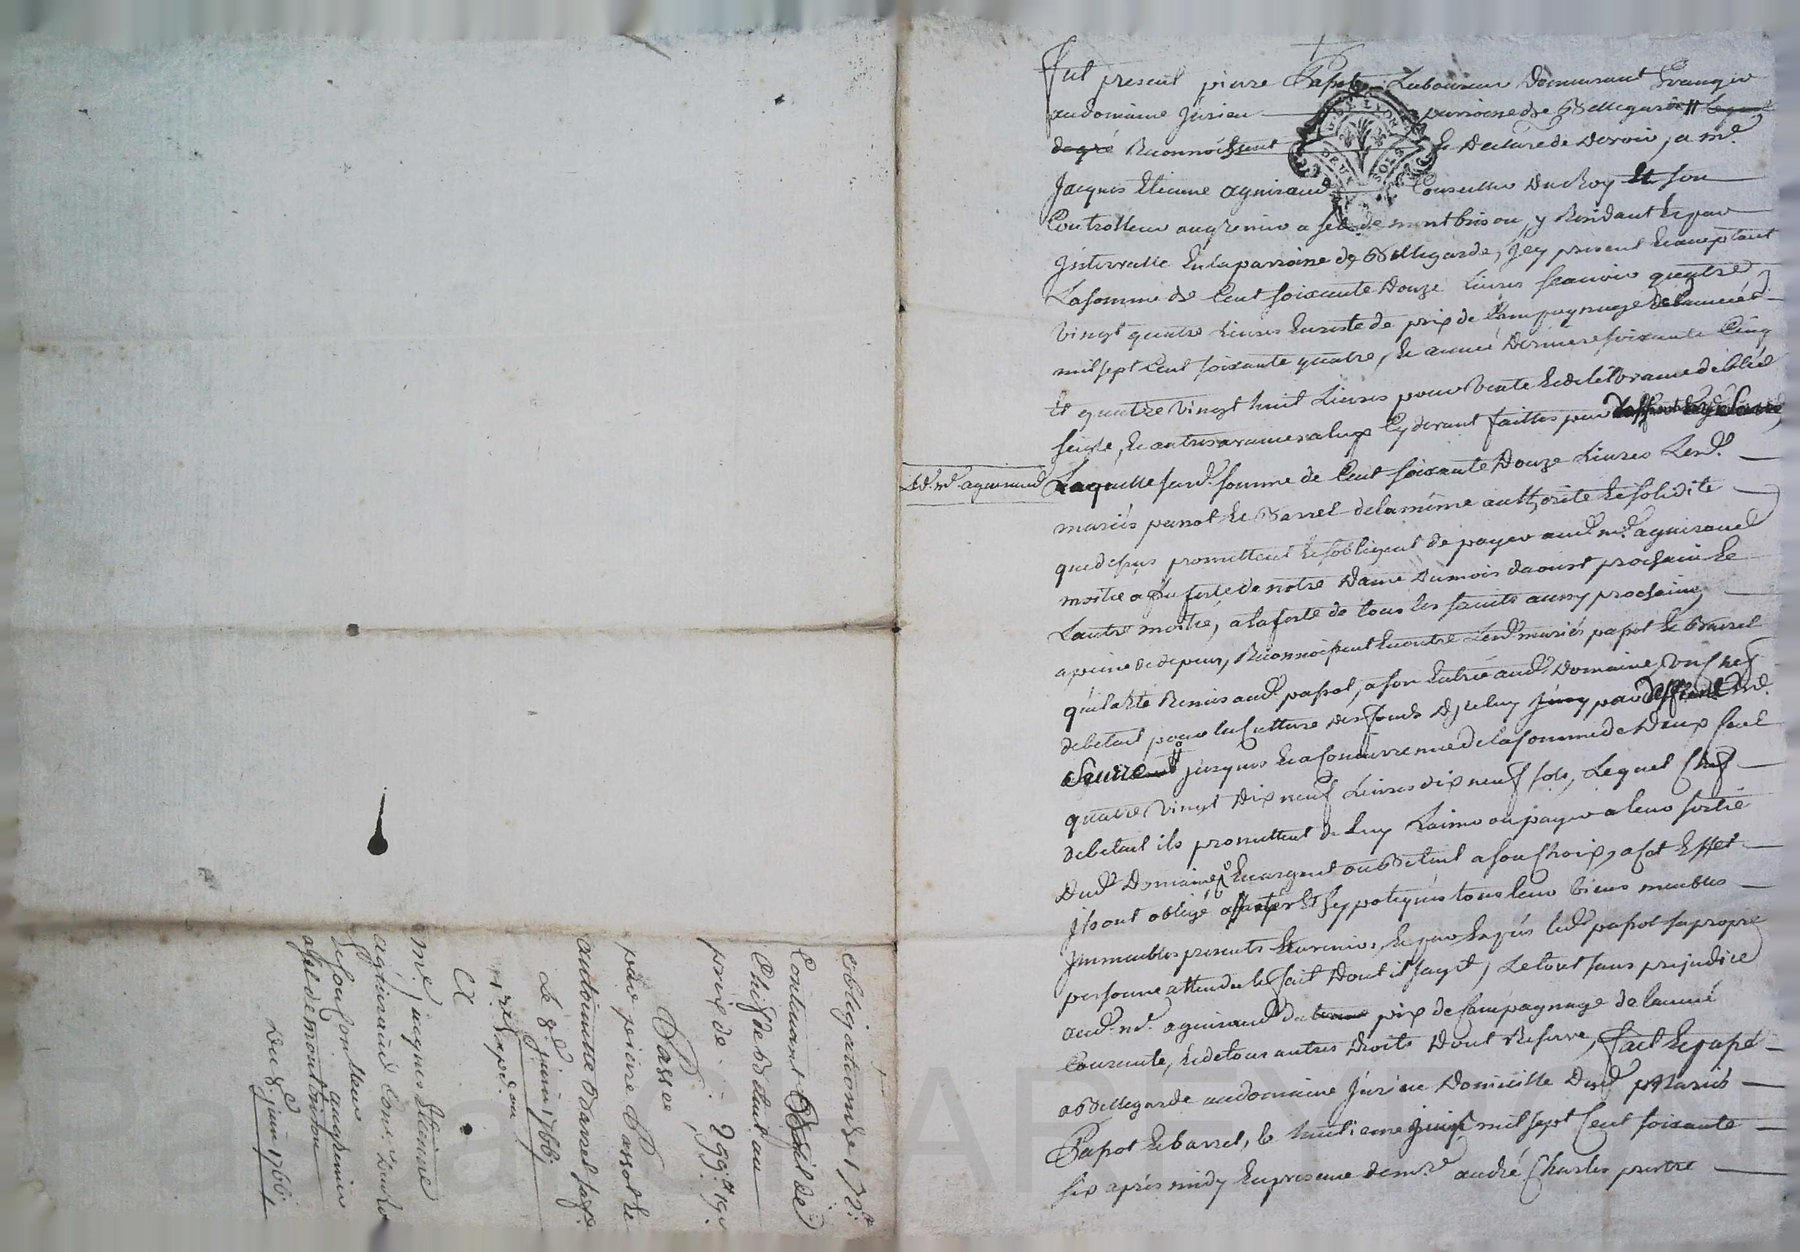 Fut present pierre Papot Laboureur Demeurant Granger
au domaine Jurieu parroisse de Bellegarde
degré Reconnoissent & Declare de devoir, a me
Jacques Etienne aguiraud Conseiller du Roy Et son
Controlleur au grenier a sel de montbrison y Residant Et par
Intervalle En la parroisse de Bellegarde, Icy present Et acceptant
La somme de Cent soixante Douze Livres scavoir quatre
vingt quatre Livres En reste de prix de Compagnage de lannée
mil sept Cent soixante quatre, Et année Derniere soixante Cinq
Et quatre vingt huit Livres pour vente Et de blé
seigle, Et autres Cy devant faittes par
Led. me aguiraud
Laquelle susd. somme de Cent soixante Douze Livres Lesd.
mariés papot Et Barrel de la même authorité Et solidité
que dessus promettent Et sobligent de payer aud. me aguiraud
moitié a la feste de notre Dame Du mois daoust prochain Et
Lautre moitié, a la feste de tous les saints aussy prochaine,
a peine de depens, Reconnoissent En outre Lesd. mariés papot Et Barrel
quil a Eté Remis aud. papot, a son Entrée aud. Domaine, un chef
de betail pour la Culture des fonds Dycelluy par
jusques Et a Concurrence de la somme de Deux Cent
quatre vingt Dix neuf Livres dix neuf sols, Lequel Chef
de betail ils promettent de luy Laisser ou payer a leur sortie
Dud. Domaine En argent ou Betail a son Choix, a Cet Effet
Ils ont obligé affecté Et hypotequés tous leur biens meubles
Immeubles presents Et avenirs, Et par Exprés led. papot sa propre
personne attendu le fait Dont il sagit, Le tout sans prejudice
aud. me aguiraud du prix de Compagnage de lannée
Courante, Et de tous autres Droits Dont Reserve, fait Et passé
a Bellegarde au domaine Jurieu Domicille Desd. Mariés
Papot Et barrel, le huitieme juin mil sept Cent soixante
six aprés midy En presence de mre andré Charles prestre
GEN. DE LYON
DEUX SOLS
obligation de 172 lt
Contenant Bail de
Chef de Betail au
prix de 299 lt 19 s.
Passée
par pierre Passot Et
antoinette Barrel sa fe.
Le 8e juin 1766
A
me jacques Etienne
aguiraud Cons. du Roy
Et Son Controlleur au grenier
a sel de montbrison
Du 8e juin 1766